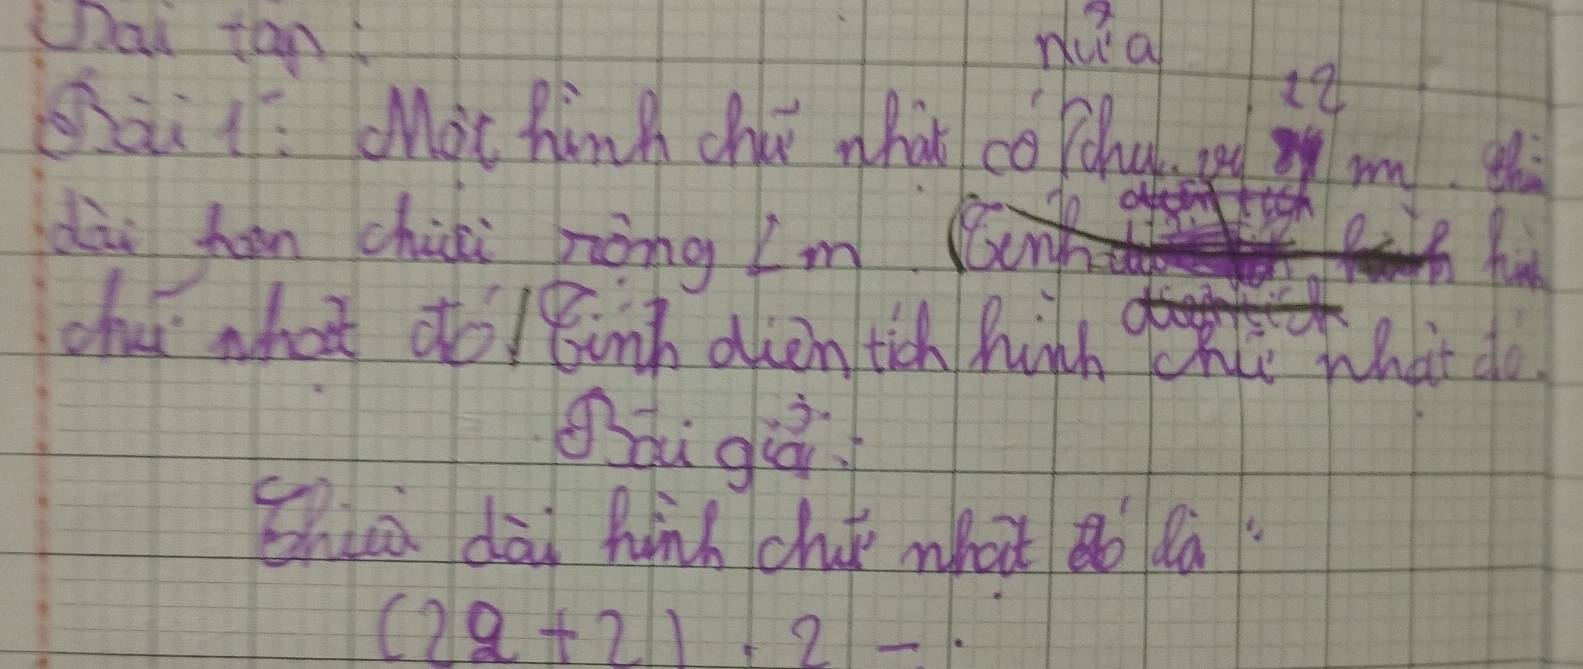 Bài tập:
nửa
12
Bài 1: Một hình chữ nhật có chu vi m
dài hơn chiều rộng 2m. (Tính hình
chữ nhật đó) Tính diện tích hình chữ nhật đó.
Bài giải:
Chiều dài hình chữ nhật đó là:
(22 + 2) : 2 =